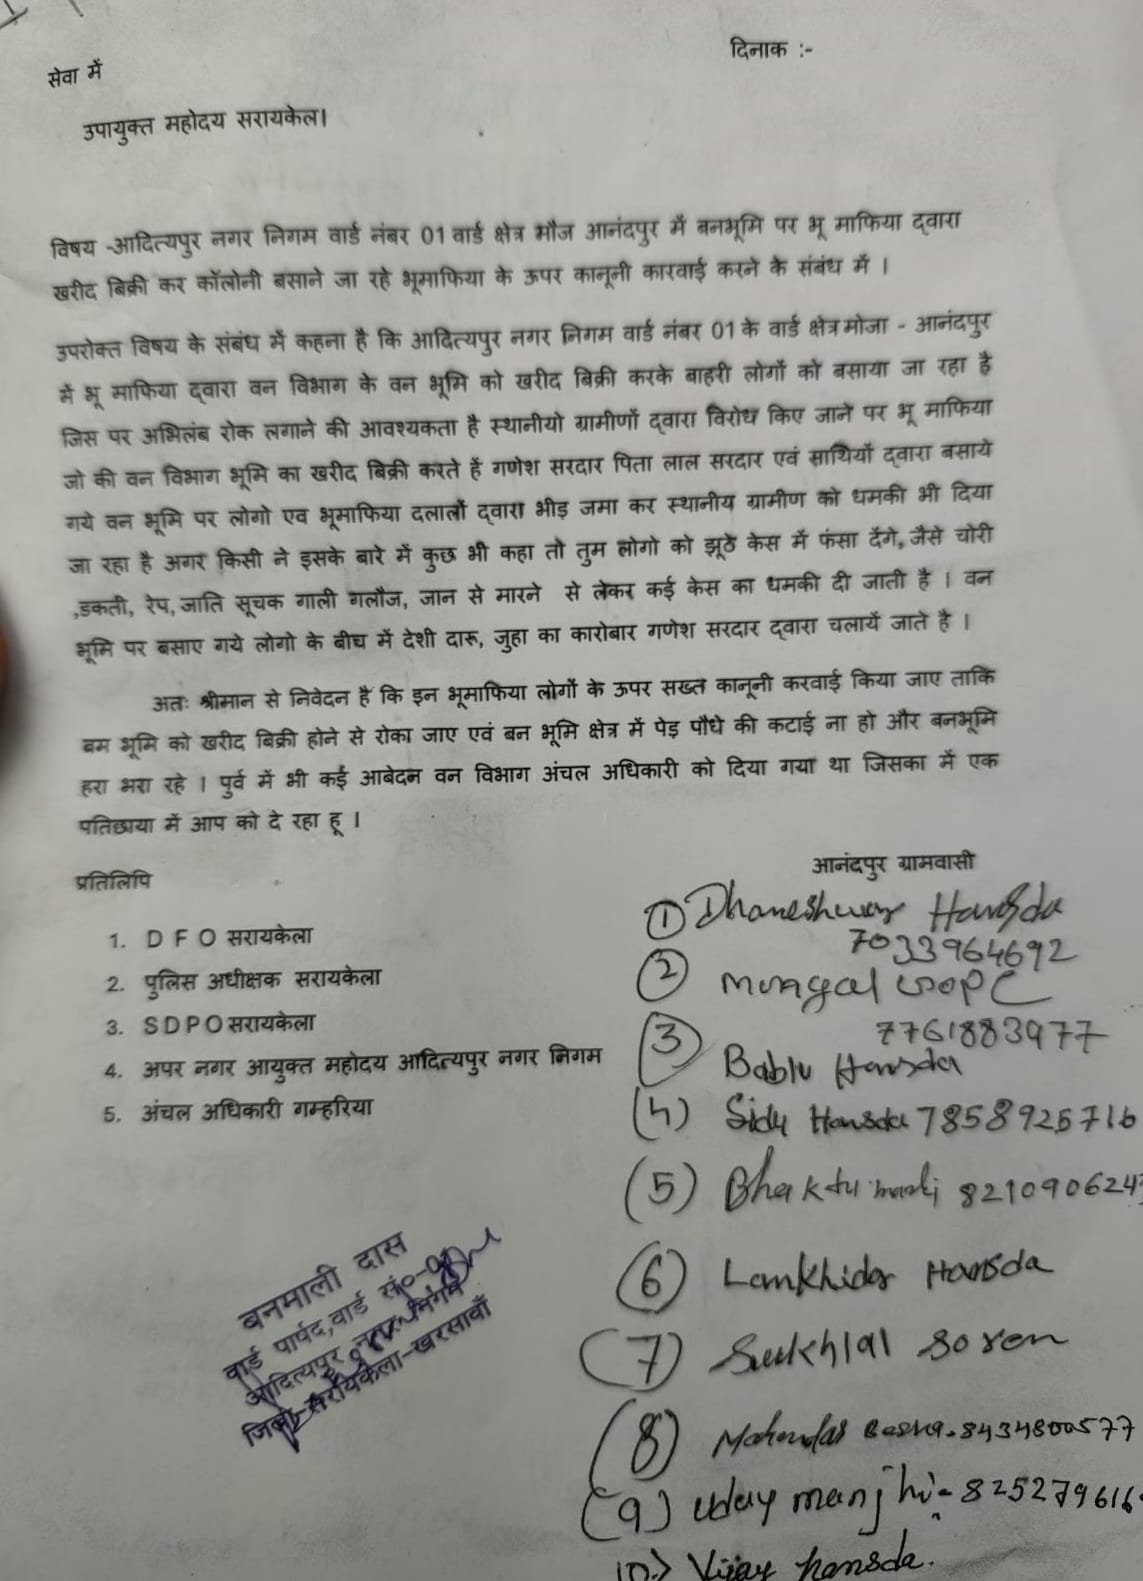 दिनाक :-
सेवा में
उपायुक्त महोदय सरायकेल।
विषय -आदित्यपुर नगर निगम वार्ड नंबर 01 वार्ड क्षेत्र मौज आनंदपुर में बनभूमि पर भू माफिया द्वारा
खरीद बिक्री कर कॉलोनी बसाने जा रहे भूमाफिया के ऊपर कानूनी कारवाई करने के संबंध में ।
उपरोक्त विषय के संबंध में कहना है कि आदित्यपुर नगर निगम वार्ड नंबर 01 के वार्ड क्षेत्र मोजा - आनंदपुर
में भू माफिया द्वारा वन विभाग के वन भूमि को खरीद बिक्री करके बाहरी लोगों को बसाया जा रहा है
जिस पर अभिलंब रोक लगाने की आवश्यकता है स्थानीयो ग्रामीणों द्वारा विरोध किए जाने पर भू माफिया
जो की वन विभाग भूमि का खरीद बिक्री करते हैं गणेश सरदार पिता लाल सरदार एवं साथियों द्वारा बसाये
गये वन भूमि पर लोगो एव भूमाफिया दलालों द्वारा भीड़ जमा कर स्थानीय ग्रामीण को धमकी भी दिया
जा रहा है अगर किसी ने इसके बारे में कुछ भी कहा तो तुम लोगो को झूठे केस में फंसा देंगे, जैसे चोरी
,डकती, रेप, जाति सूचक गाली गलौज, जान से मारने से लेकर कई केस का धमकी दी जाती है । वन
भूमि पर बसाए गये लोगो के बीच में देशी दारू, जुहा का कारोबार गणेश सरदार द्वारा चलायें जाते है ।
अतः श्रीमान से निवेदन है कि इन भूमाफिया लोगों के ऊपर सख्त कानूनी करवाई किया जाए ताकि
बम भूमि को खरीद बिक्री होने से रोका जाए एवं बन भूमि क्षेत्र में पेड़ पौधे की कटाई ना हो और बनभूमि
हरा भरा रहे । पुर्व में भी कई आबेदन वन विभाग अंचल अधिकारी को दिया गया था जिसका में एक
पतिछाया में आप को दे रहा हू ।
आनंदपुर ग्रामवासी
प्रतिलिपि
1. D F O सरायकेला
2. पुलिस अधीक्षक सरायकेला
3. SDPO सरायकेला
4. अपर नगर आयुक्त महोदय आदित्यपुर नगर निगम
5. अंचल अधिकारी गम्हरिया
① Dhaneshwar Hansda
7033964692
② mungal GOPE
7761883977
③ Bablu Hansda
(4) Sidu Hansda 7858925716
(5) Bhaktu 821090624
⑥ Lamkhidar Hansda
(7) Sukhlal Soren
(8) 8434800577
(9) uday manjhi - 825279616
10.) Vijay hansda.
बनमाली दास
वार्ड पार्षद, वार्ड सं०-01
आदित्यपुर नगर निगम
जिला-सरायकेला-खरसावाँ